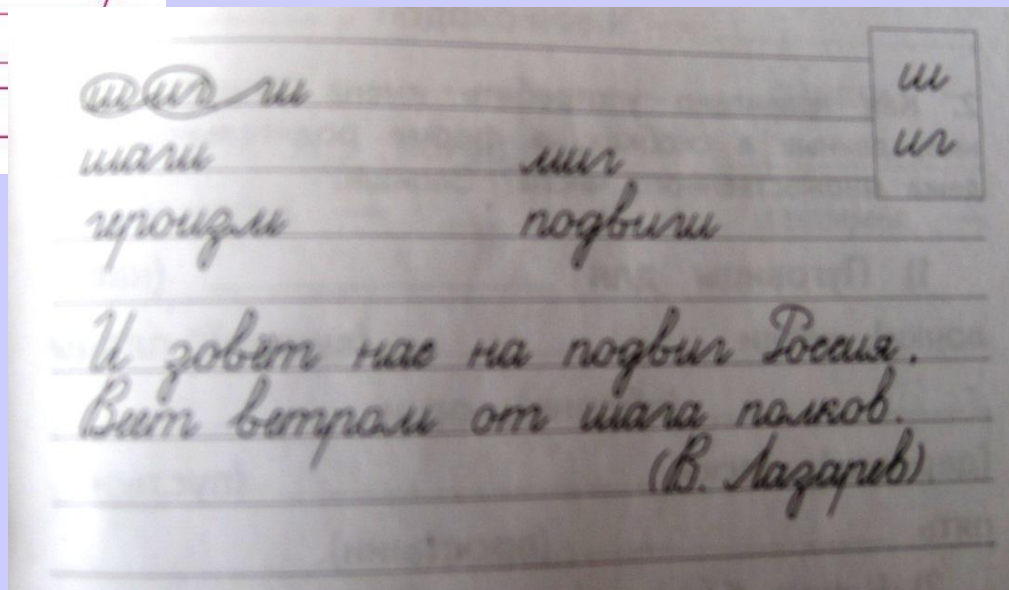 ш иг ги ш
шаги миг иг
героизм подвиги
И зовёт нас на подвиг Россия.
Веет ветром от шага полков.
(В. Лазарев)